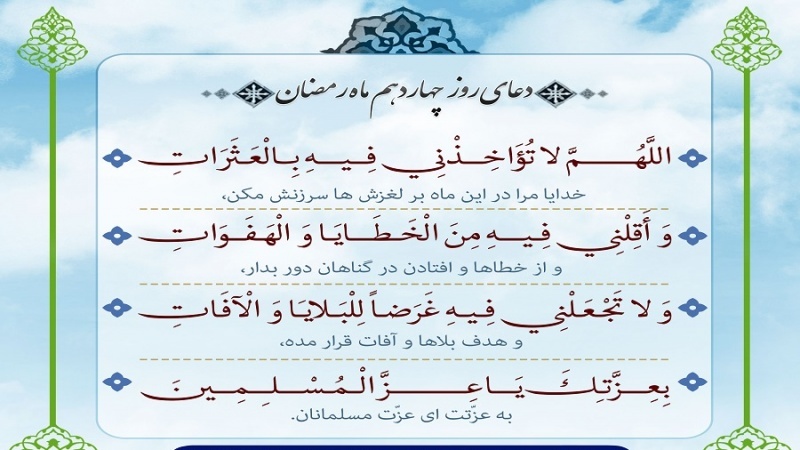 دعای روز چهاردهم ماه رمضان
اللَّهُمَّ لا تُؤَاخِذْنِي فِيهِ بِالْعَثَرَاتِ
خدایا مرا در این ماه بر لغزش ها سرزنش مکن،
وَ أَقِلْنِي فِيهِ مِنَ الْخَطَايَا وَ الْهَفَوَاتِ
و از خطاها و افتادن در گناهان دور بدار،
وَ لا تَجْعَلْنِي فِيهِ غَرَضاً لِلْبَلايَا وَ الْآفَاتِ
و هدف بلاها و آفات قرار مده،
بِعِزَّتِكَ يَا عِزَّ الْمُسْلِمِينَ
به عزّتت ای عزّت مسلمانان.